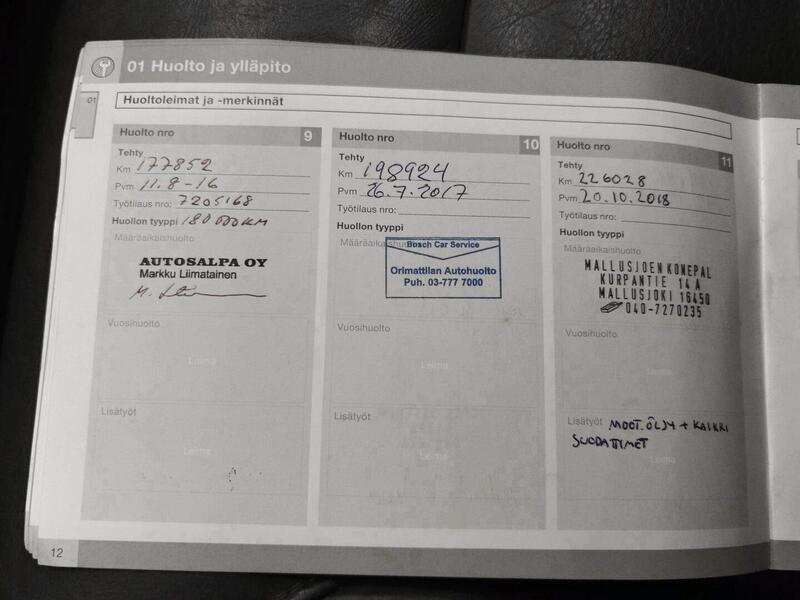 01 Huolto ja ylläpito
01
Huoltoleimat ja -merkinnät
Huolto nro 9
Tehty
Km 177852
Pvm 11.8-16
Työtilaus nro: 7205168
Huollon tyyppi 180 000KM
Määräaikaishuolto
AUTOSALPA OY
Markku Liimatainen
Vuosihuolto
Leima
Lisätyöt
Leima
Huolto nro 10
Tehty
Km 198924
Pvm 26.7.2017
Työtilaus nro:
Huollon tyyppi
Määräaikaishuolto
Bosch Car Service
Orimattilan Autohuolto
Puh. 03-777 7000
Vuosihuolto
Leima
Lisätyöt
Leima
Huolto nro 11
Tehty
Km 226028
Pvm 20.10.2018
Työtilaus nro:
Huollon tyyppi
Määräaikaishuolto
MALLUSJOEN KONEPAL
KURPANTIE 14 A
MALLUSJOKI 16450
040-7270235
Vuosihuolto
Leima
Lisätyöt MOOT.ÖLJY + KAIKKI
SUODATTIMET
Leima
12